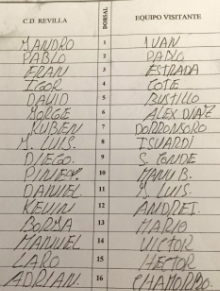 C.D. REVILLA DORSAL EQUIPO VISITANTE
MANDRO 1 IVAN
PABLO 2 PABLO
FRAN 3 ESTRADA
IGOR 4 COTE
DAVID 5 BUSTILLO
BORGE 6 ALEX DIAZ
RUBEN 7 DORRONSORO
M. LUIS. 8 ISUARDI
DIEGO. 9 S. CONDE
PINEY. 10 MANU B.
DANIEL 11 LUIS.
KEVIN 12 ANDREI.
BORMA 13 MARIO
MANUEL 14 VICTOR
LARO 15 HECTOR
ADRIAN. 16 CHAMORRO.